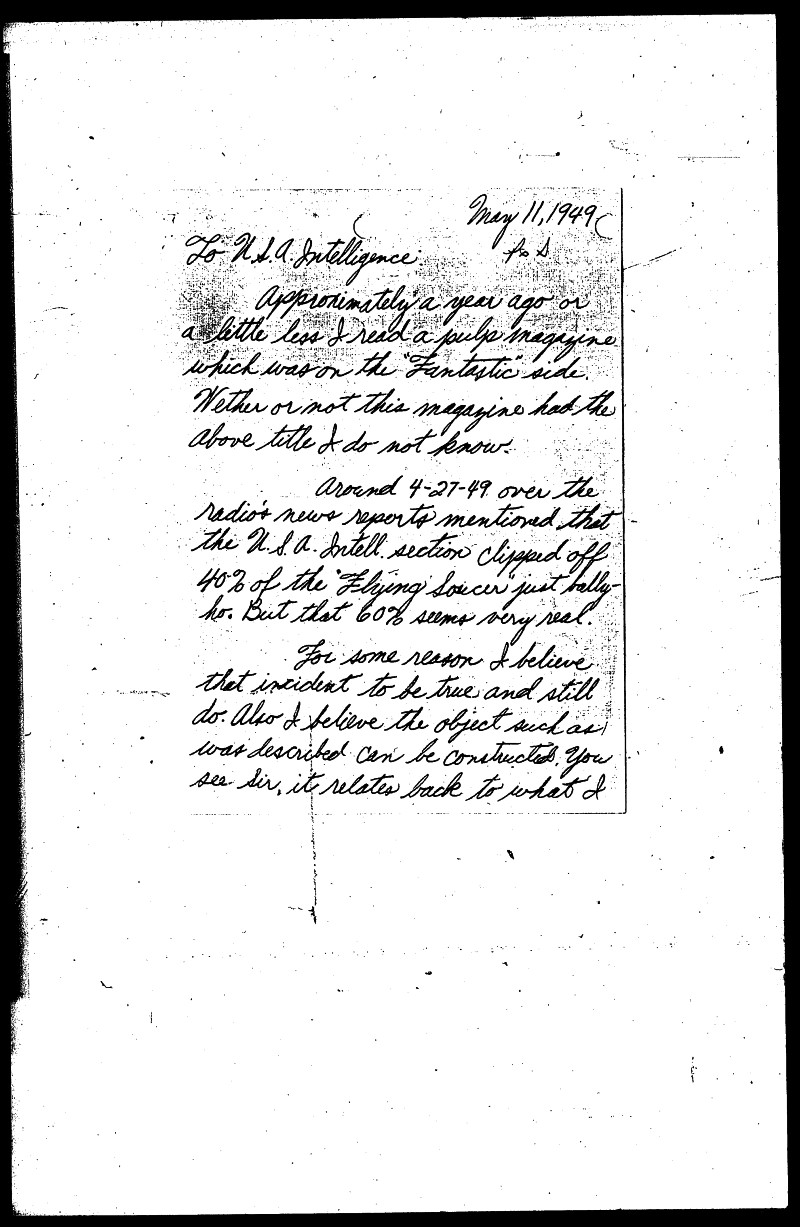 May 11, 1949
To U.S.A. Intelligence:
Approximately a year ago or
a little less I read a pulp magazine
which was on the "Fantastic" side.
Wether or not this magazine had the
above title I do not know.
Around 4-27-49 over the
radio's news reports mentioned that
the U.S.A. Intell. section clipped off
40% of the "Flying Soucer" just bally-
ho. But that 60% seems very real.
For some reason I believe
that incident to be true and still
do. Also I believe the object such as
was described can be constructed. You
see Sir, it relates back to what I